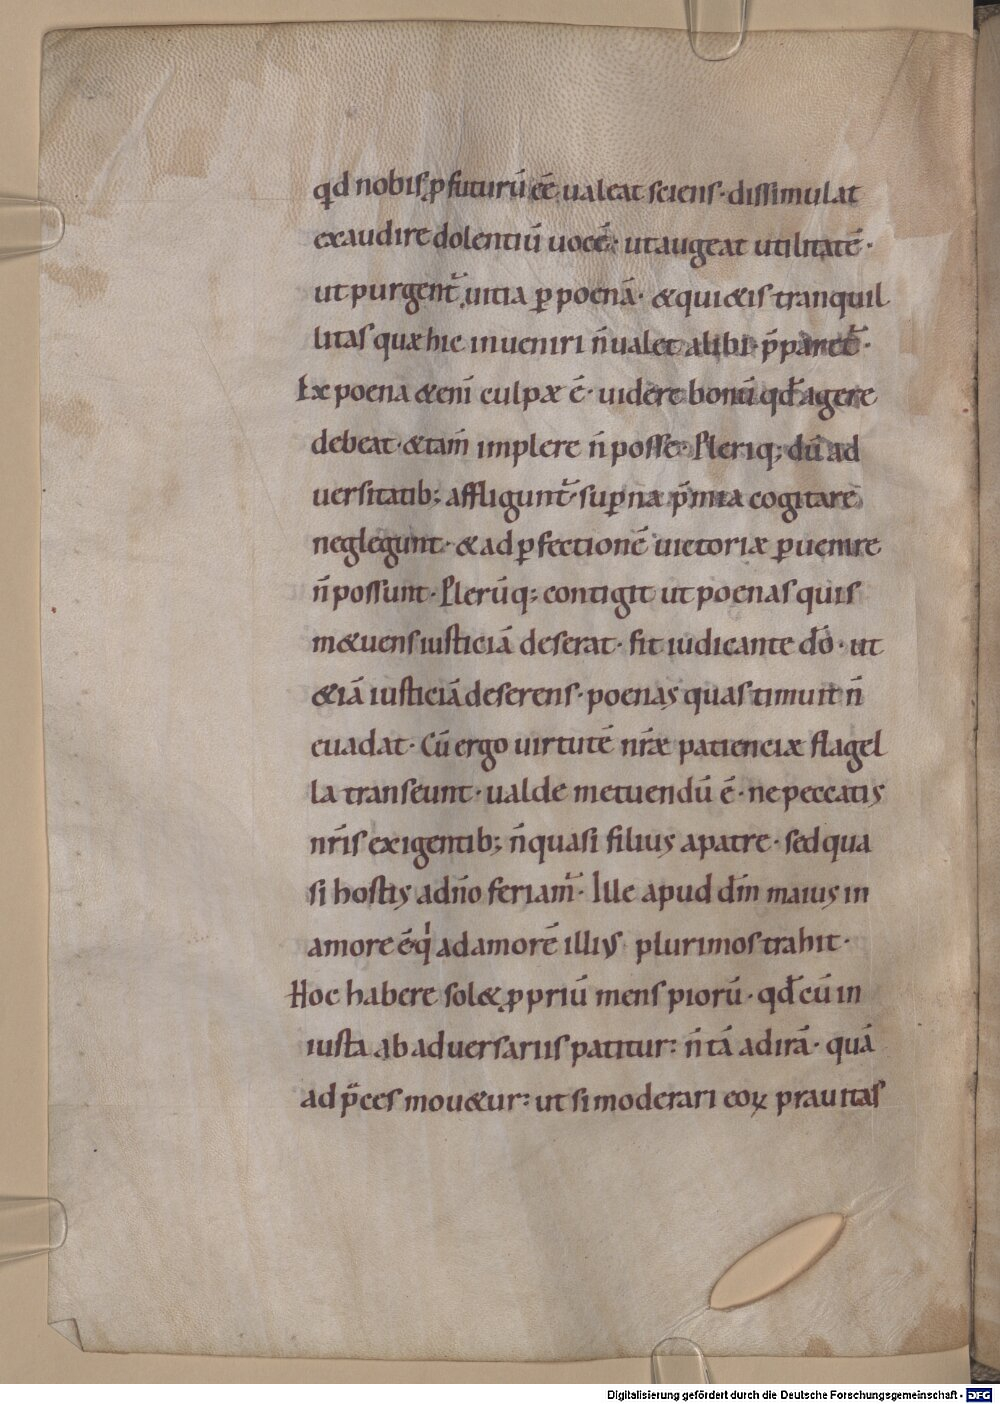 qd nobis ꝓfuturū eē ualeat sciens· dissimulat
exaudire dolentiū uocē· ut augeat utilitatē·
ut purgent᷑ uitia ꝑ poenā· & qui &is tranquil
litas quæ hic inueniri n̄ ualet alibi· p̄paret᷑·
Ex poena &eni culpæ ē· uidere bonū qđ agere
debeat· & tam̄ implere n̄ posse· Pleriq; dū ad
uersitatib; affligunt᷑· suꝑnæ p̄mia cogitare
neglegunt· & ad ꝑfectionē uictoriæ ꝑuenire
n̄ possunt· Plerūq; contigit ut poenas quis
m&uens iusticiā deserat· fit iudicante dō· ut
&iā iusticiā deserens· poenas quas timuit n̄
euadat· Cū ergo uirtutē nr̄æ patienciæ flagel
la transeunt· ualde metuendū ē· ne peccatis
nr̄is exigentib; n̄ quasi filius a patre· sed qua
si hostis a dn̄o feriam᷑· Ille apud dm̄ maius in
amore ē qͥ ad amorē illius plurimos trahit·
Hoc habere sol& ꝓpriū mens piorū· qđ cū in
iusta ab aduersariis patitur: n̄ tā ad irā· quā
ad p̄ces mou&ur: ut si moderari eoꝝ prauitas
Digitalisierung gefördert durch die Deutsche Forschungsgemeinschaft - DFG